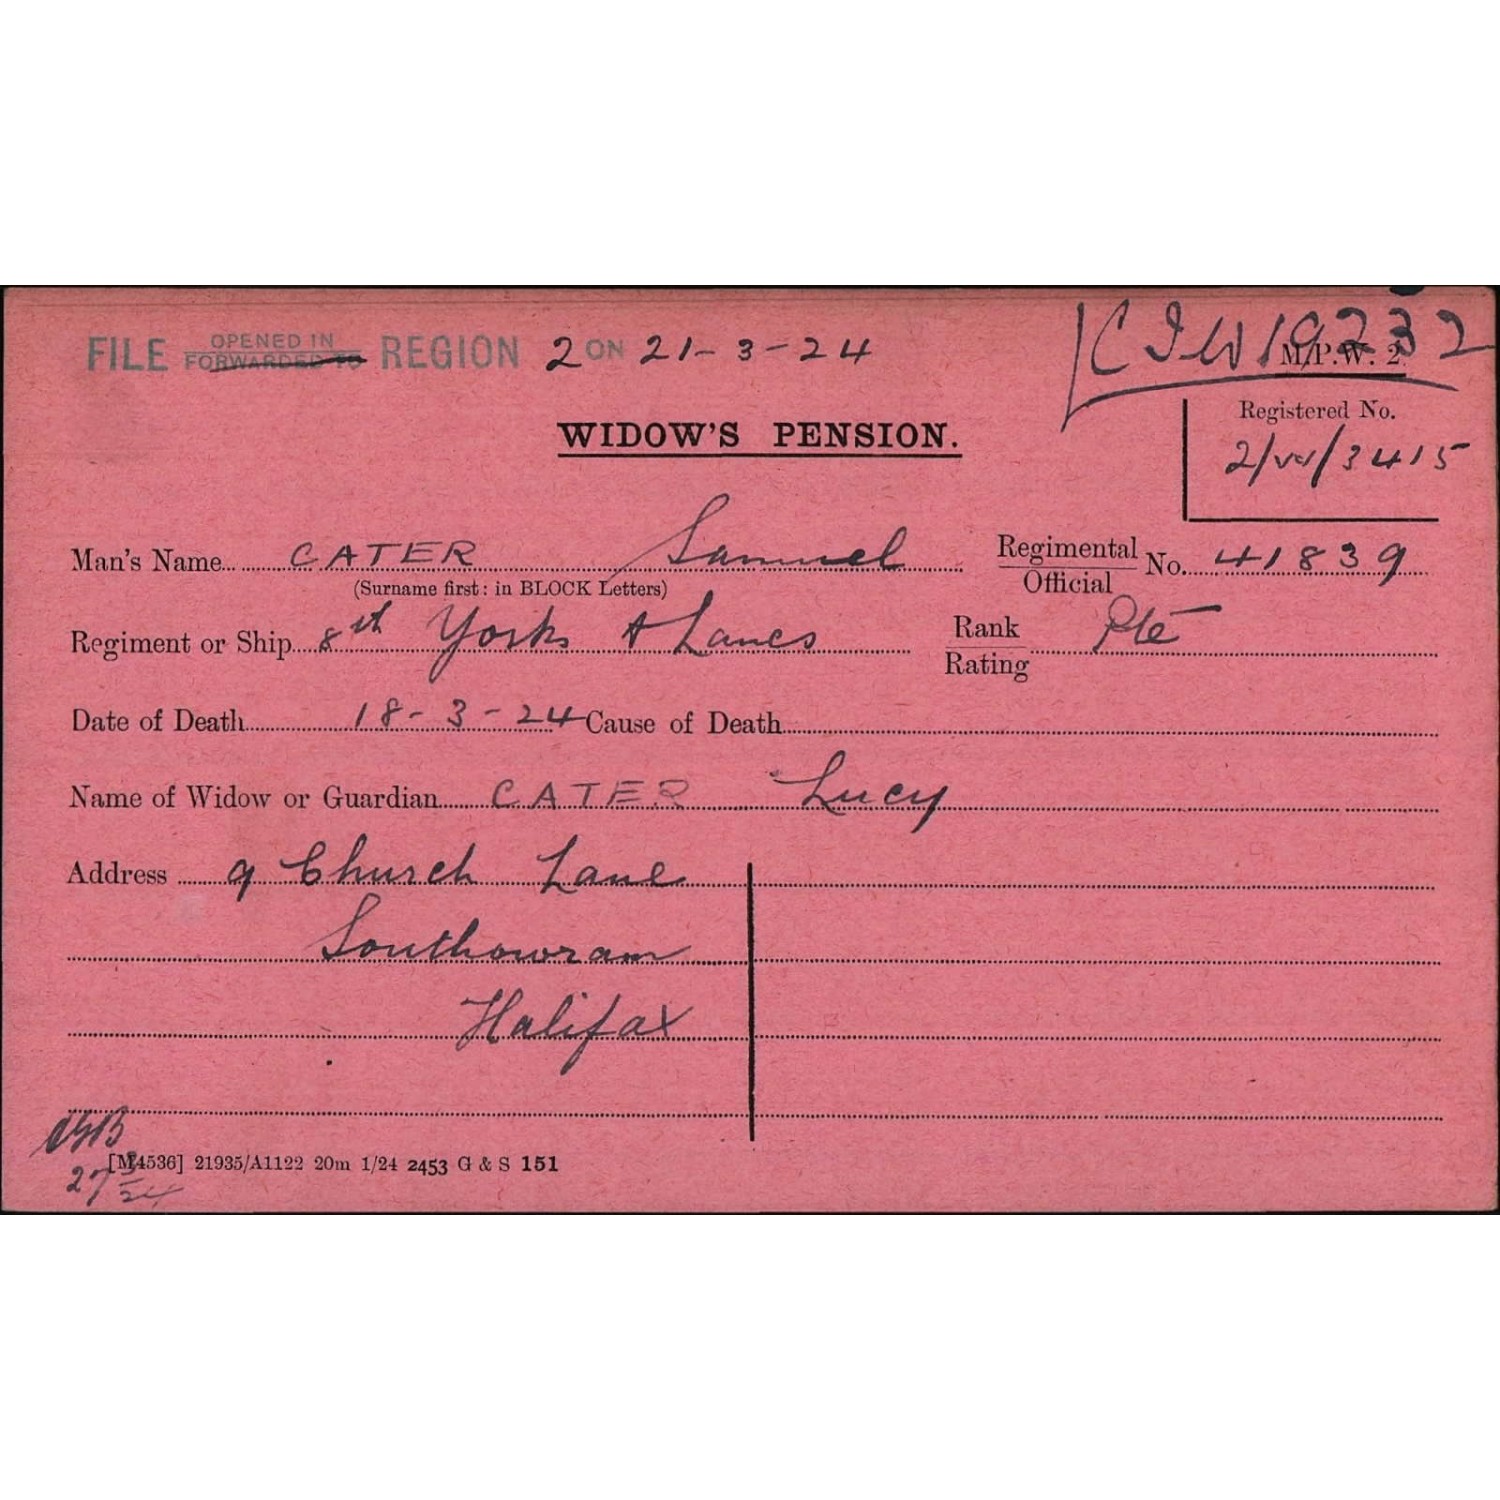 FILE OPENED IN FORWARDED TO REGION 2 ON 21-3-24
M.P.W. 2.
Registered No.
2/W/3415
WIDOW'S PENSION.
Man's Name CATER Samuel Regimental Official No. 41839
(Surname first: in BLOCK Letters)
Regiment or Ship 8th Yorks & Lancs Rank Rating Pte
Date of Death 18-3-24 Cause of Death
Name of Widow or Guardian CATER Lucy
Address 9 Church Lane
Southowram
Halifax
27 3/24
[M4536] 21935/A1122 20m 1/24 2453 G & S 151